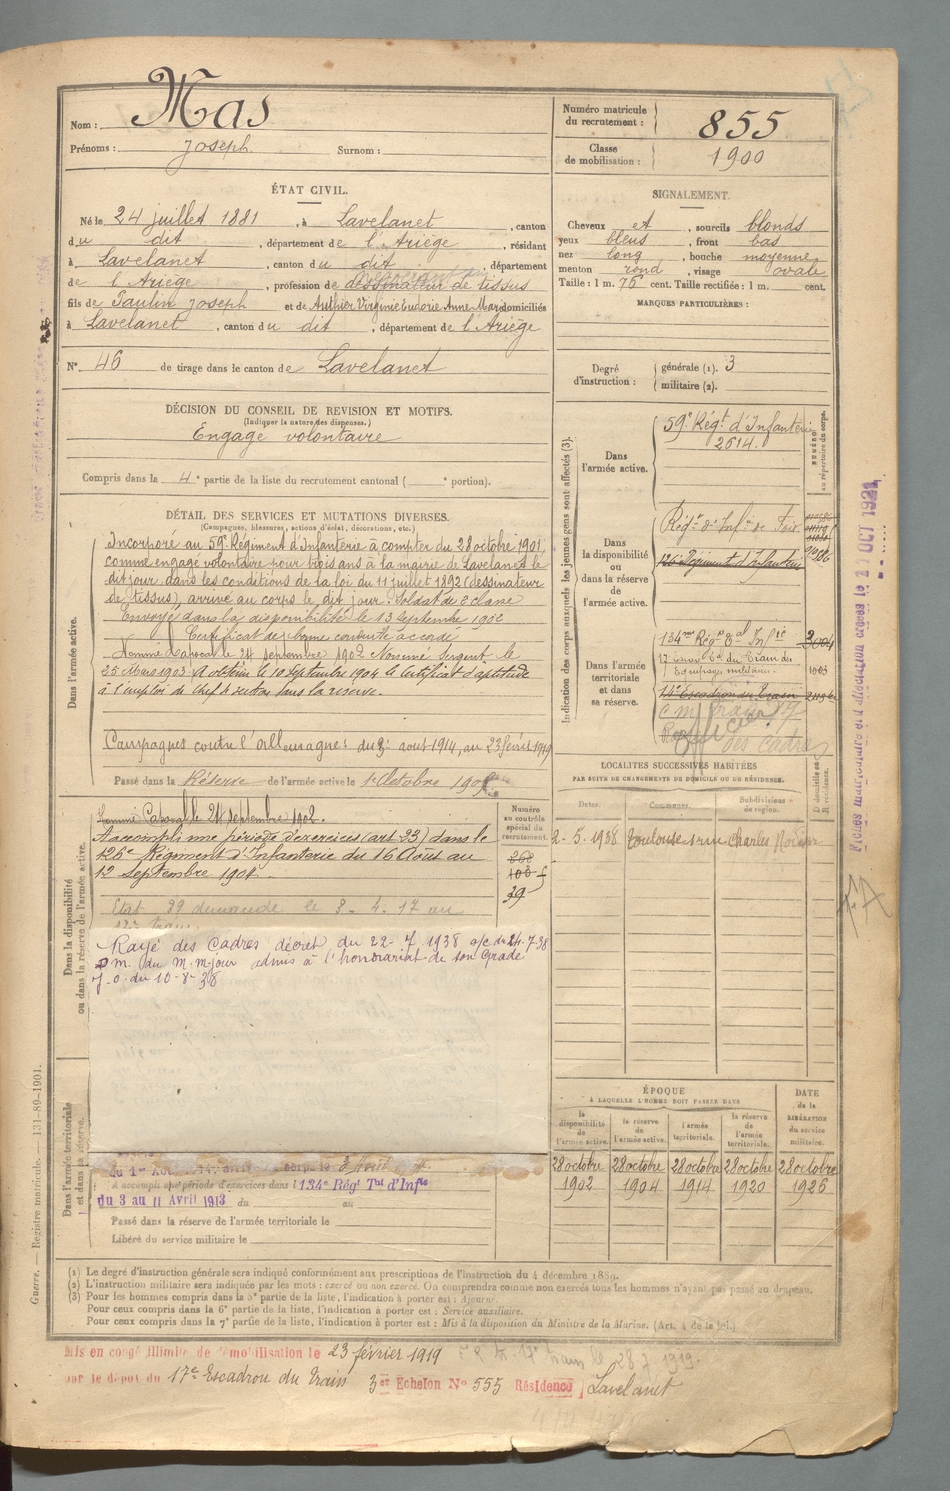 Nom : Mas
Prénoms : Joseph Surnom :
Numéro matricule du recrutement : 855
Classe de mobilisation : 1900
ÉTAT CIVIL.
Né le 24 juillet 1881, à Lavelanet, canton
du dit, département de l'Ariège, résidant
à Lavelanet, canton du dit, département
de l'Ariège, profession de dessinateur de tissus
fils de Paulin Joseph et de Authier Virginie Eudoxie Anne-Marie domiciliés
à Lavelanet, canton du dit, département de l'Ariège
N° 46 de tirage dans le canton de Lavelanet
SIGNALEMENT.
Cheveux et, sourcils blonds
yeux bleus, front bas
nez long, bouche moyenne
menton rond, visage ovale
Taille : 1 m. 76 cent. Taille rectifiée : 1 m. cent.
MARQUES PARTICULIÈRES :
Degré d'instruction : générale (1). 3
militaire (2).
DÉCISION DU CONSEIL DE REVISION ET MOTIFS.
(Indiquer la nature des dispenses.)
Engagé volontaire
Compris dans la 4e partie de la liste du recrutement cantonal ( e portion).
DÉTAIL DES SERVICES ET MUTATIONS DIVERSES.
(Campagnes, blessures, actions d'éclat, décorations, etc.)
Dans l'armée active.
Incorporé au 59e Régiment d'Infanterie à compter du 28 octobre 1901,
comme engagé volontaire pour trois ans à la mairie de Lavelanet le
dit jour dans les conditions de la loi du 11 juillet 1892 (dessinateur
de tissus), arrivé au corps le dit jour. Soldat de 2 classe
Envoyé dans la disponibilité le 13 septembre 1902
Certificat de bonne conduite accordé
24 septembre 1902 Nommé Sergent le
25 Mars 1903. A obtenu le 10 septembre 1904 le certificat d'aptitude
à l'emploi de chef de section dans la réserve.
Campagnes contre l'Allemagne : du 3 août 1914, au 23 février 1919
Passé dans la Réserve de l'armée active le 1er Octobre 190
Indication des corps auxquels les jeunes gens sont affectés (3).
NUMÉRO au répertoire du corps.
Dans l'armée active.
59e Régt d'Infanterie
2614.
Dans la disponibilité ou dans la réserve de l'armée active.
Régnt d'Infie de Foix
126e Régiment d'Infanterie
Dans l'armée territoriale et dans sa réserve.
134me Régt Tal Infie
14e Escadron du Train
des cadres
Dans la disponibilité ou dans la réserve de l'armée active.
Numéro au contrôle spécial du recrutement.
Nommé Caporal le 24 septembre 1902.
A accompli une période d'exercices (art. 23) dans le
126e Régiment d'Infanterie du 16 Août au
12 Septembre 1908.
39
Rayé des Cadres décret du 22-7 1938 a/c du 24-7-38
P. m. du M. m. jour admis à l'honorariat de son grade
J. o. du 10-8-38
LOCALITÉS SUCCESSIVES HABITÉES
PAR SUITE DE CHANGEMENTS DE DOMICILE OU DE RÉSIDENCE.
Dates. Communes. Subdivisions de région. D domicile ou R résidence.
2-5.1938 Toulouse 1 rue Charles
ÉPOQUE
À LAQUELLE L'HOMME DOIT PASSER DANS
la disponibilité de l'armée active.
la réserve de l'armée active.
l'armée territoriale.
la réserve de l'armée territoriale.
DATE de la LIBÉRATION du service militaire.
28 octobre 1902
28 octobre 1904
28 octobre 1914
28 octobre 1920
28 octobre 1926
Dans l'armée territoriale et dans sa réserve.
A accompli une période d'exercices dans l 134e Régt Tal d'Infie
du 3 au 11 Avril 1913 du au
Passé dans la réserve de l'armée territoriale le
Libéré du service militaire le
(1) Le degré d'instruction générale sera indiqué conformément aux prescriptions de l'instruction du 4 décembre 1889.
(2) L'instruction militaire sera indiquée par les mots : exercé ou non exercé. On comprendra comme non exercés tous les hommes n'ayant pas passé au drapeau.
(3) Pour les hommes compris dans la 5e partie de la liste, l'indication à porter est : Ajourné.
Pour ceux compris dans la 6e partie de la liste, l'indication à porter est : Service auxiliaire.
Pour ceux compris dans la 7e partie de la liste, l'indication à porter est : Mis à la disposition du Ministre de la Marine. (Art. 4 de la loi.)
Mis en congé illimité de démobilisation le 23 février 1919
par le dépôt du 17e Escadron du Train 3er Échelon N° 555 Résidence Lavelanet
Guerre. — Registre matricule. — 131-89-1901.